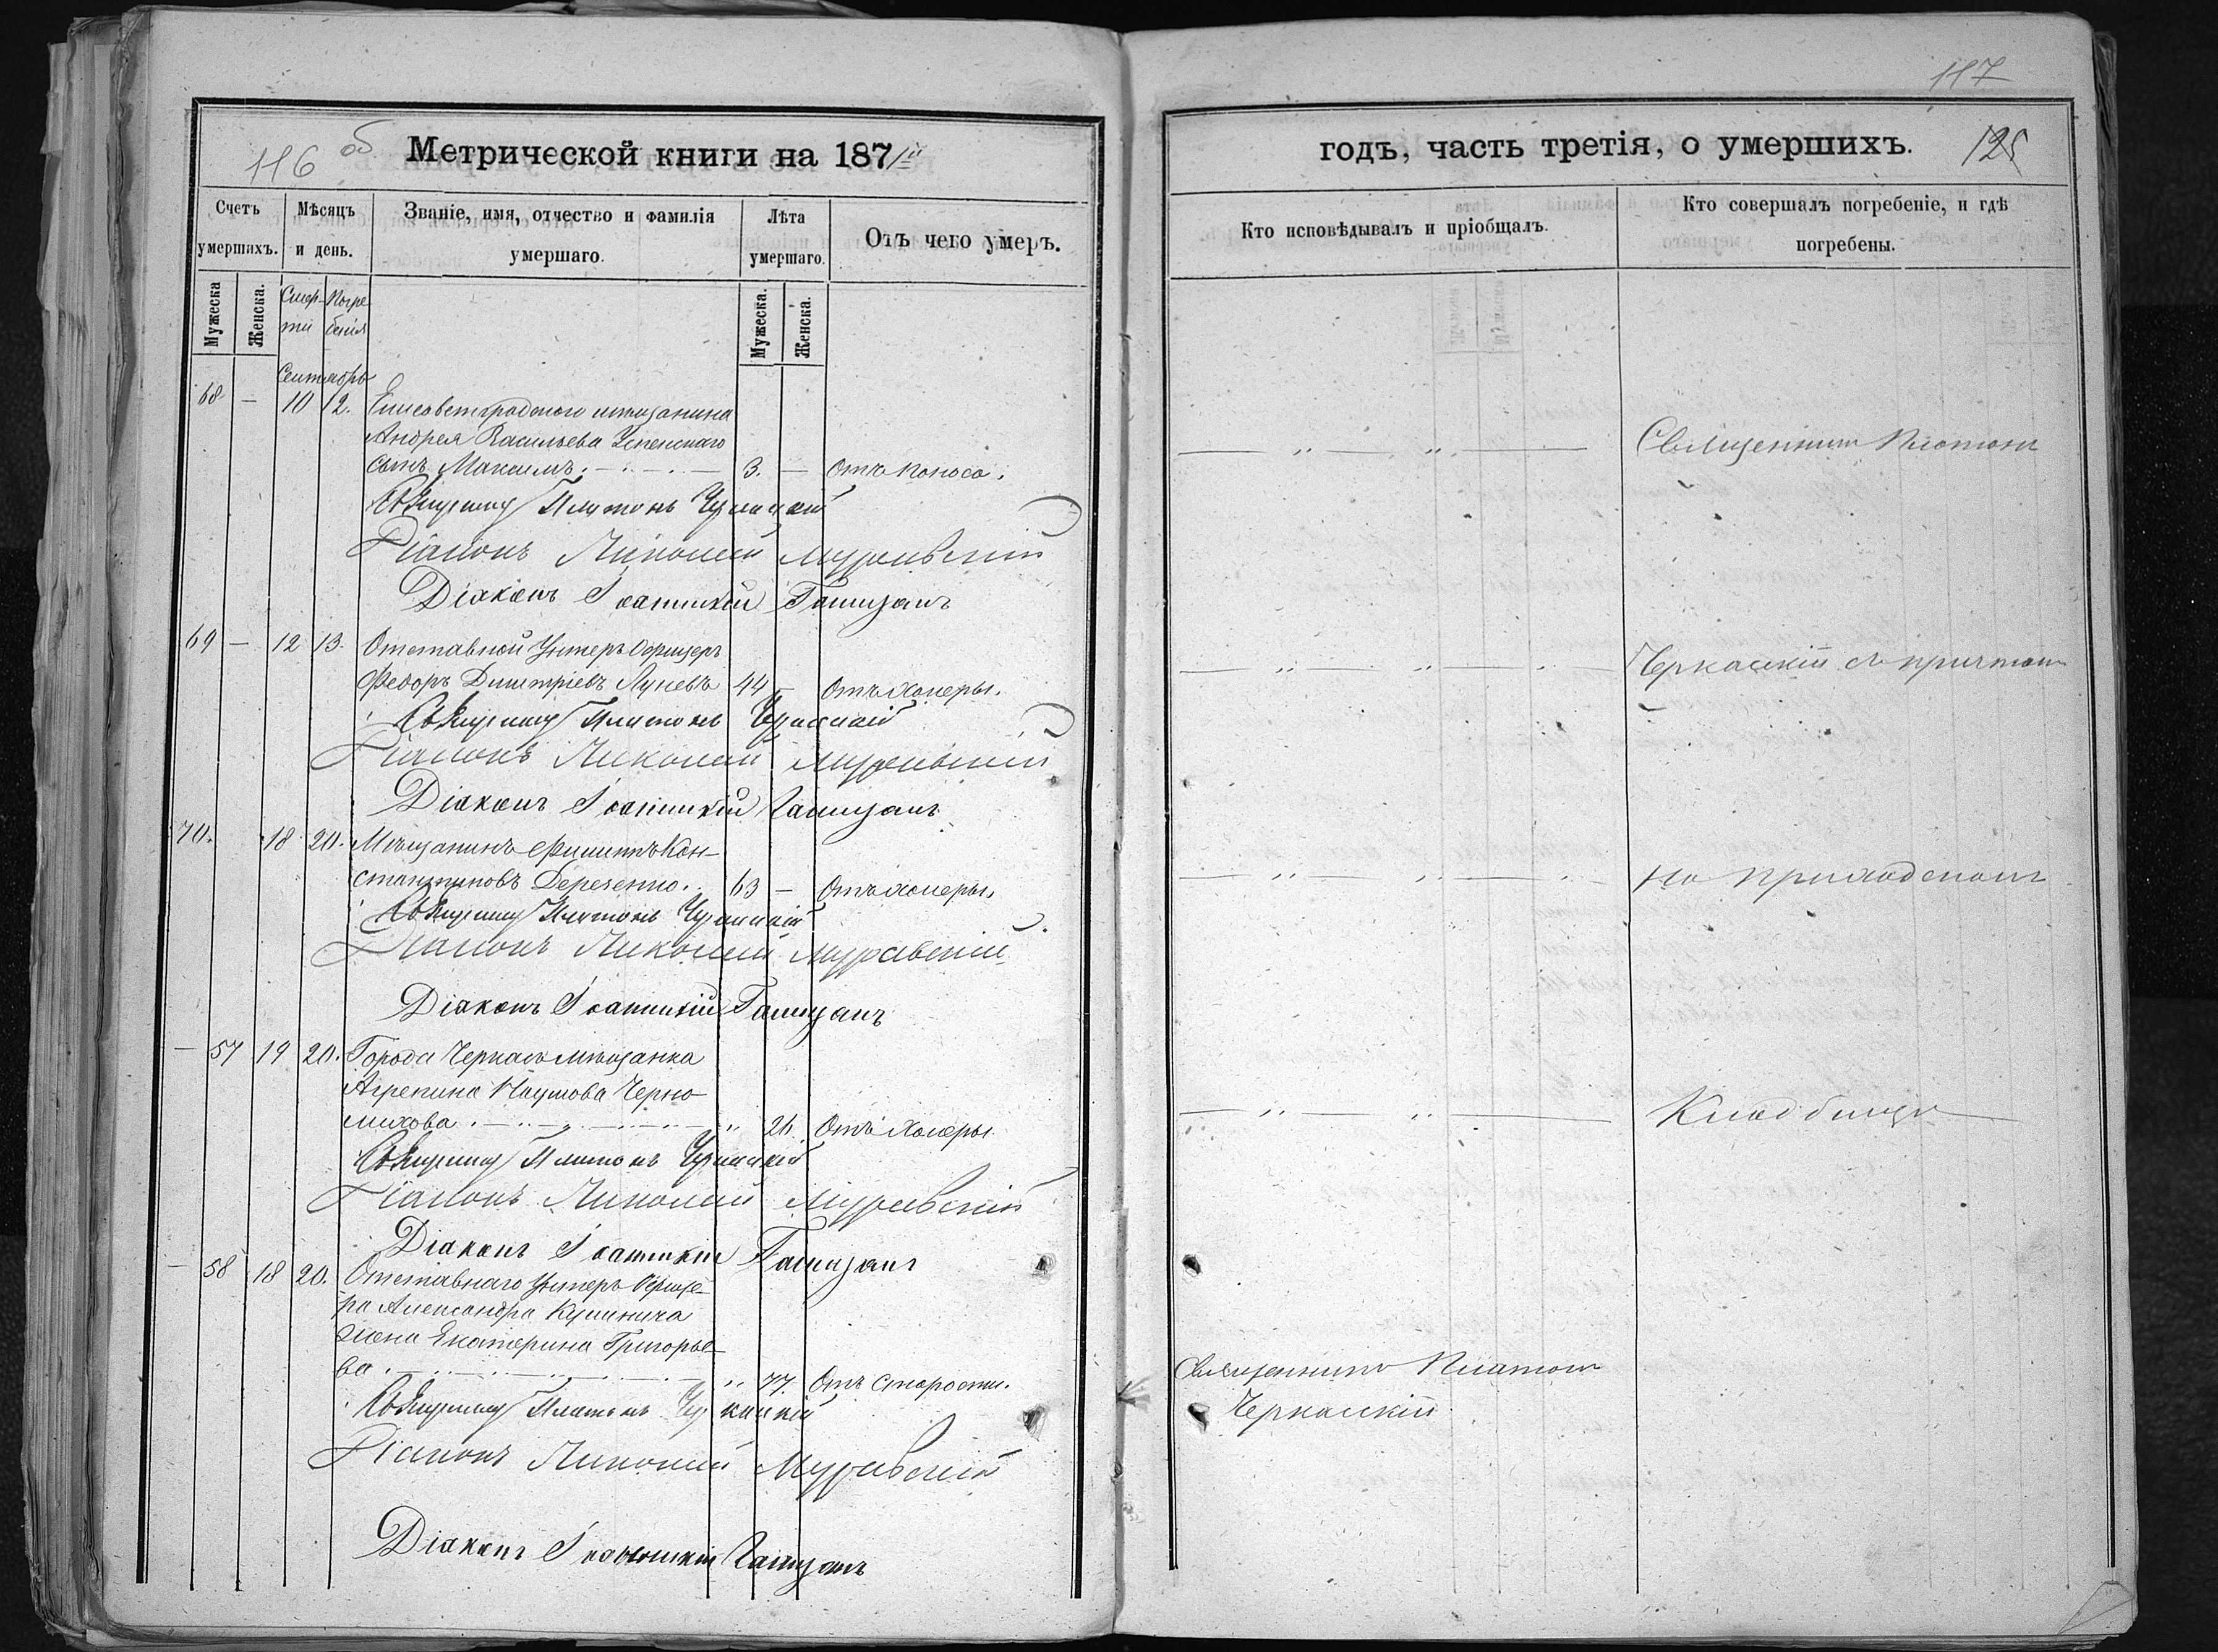 116 об
Метрической книги на 1871й
Счетъ умершихъ.
Мѣсяцъ и день.
Званіе, имя, отчество и фамилія умершаго.
Лѣта умершаго.
Отъ чего умеръ.
Мужеска
Женска.
Смерти
Погребенія
Мужеска.
Женска.
Сентябрь
68 — 10 12. Елисаветградскаго мѣщанина
Андрея Васильева Успенскаго
сынъ Максимъ. 3. — Отъ поноса.
Священникъ Платонъ Черкасскій
Діаконъ Николай Муравскій
Діаконъ Іоанникій
69 — 12 13. Отставной Унтеръ Офицеръ
Федоръ Димитріевъ Луневъ 44 — Отъ холеры.
Священникъ Платонъ Черкасскій
Діаконъ Николай Муравскій
Діаконъ Іоанникій
70. 18 20. Мѣщанинъ Филиппъ Кон-
стантиновъ 63 — Отъ холеры.
Священникъ Платонъ Черкасскій
Діаконъ Николай Муравскій
Діаконъ Іоанникій
— 57 19 20. Города Черкасъ мѣщанка
Агрепина Наумова Черно-
михова „ 26. Отъ Холеры
Священникъ Платонъ Черкасскій
Діаконъ Николай Муравскій
Діаконъ Іоанникій
— 58 18 20. Отставнаго Унтеръ Офице-
ра Александра
жена Екатерина Григорье-
ва „ 77. Отъ старости.
Священникъ Платонъ Черкасскій
Діаконъ Николай Муравскій
Діаконъ Іоанникій
117
годъ, часть третія, о умершихъ. 125
Кто исповѣдывалъ и пріобщалъ.
Кто совершалъ погребеніе, и гдѣ погребены.
— „ — „ — Священникъ Платонъ
— „ — „ — Черкасскій съ причтомъ
— „ — „ — на приходскомъ
— „ — „ — Кладбищѣ
Священникъ Платонъ
Черкасскій